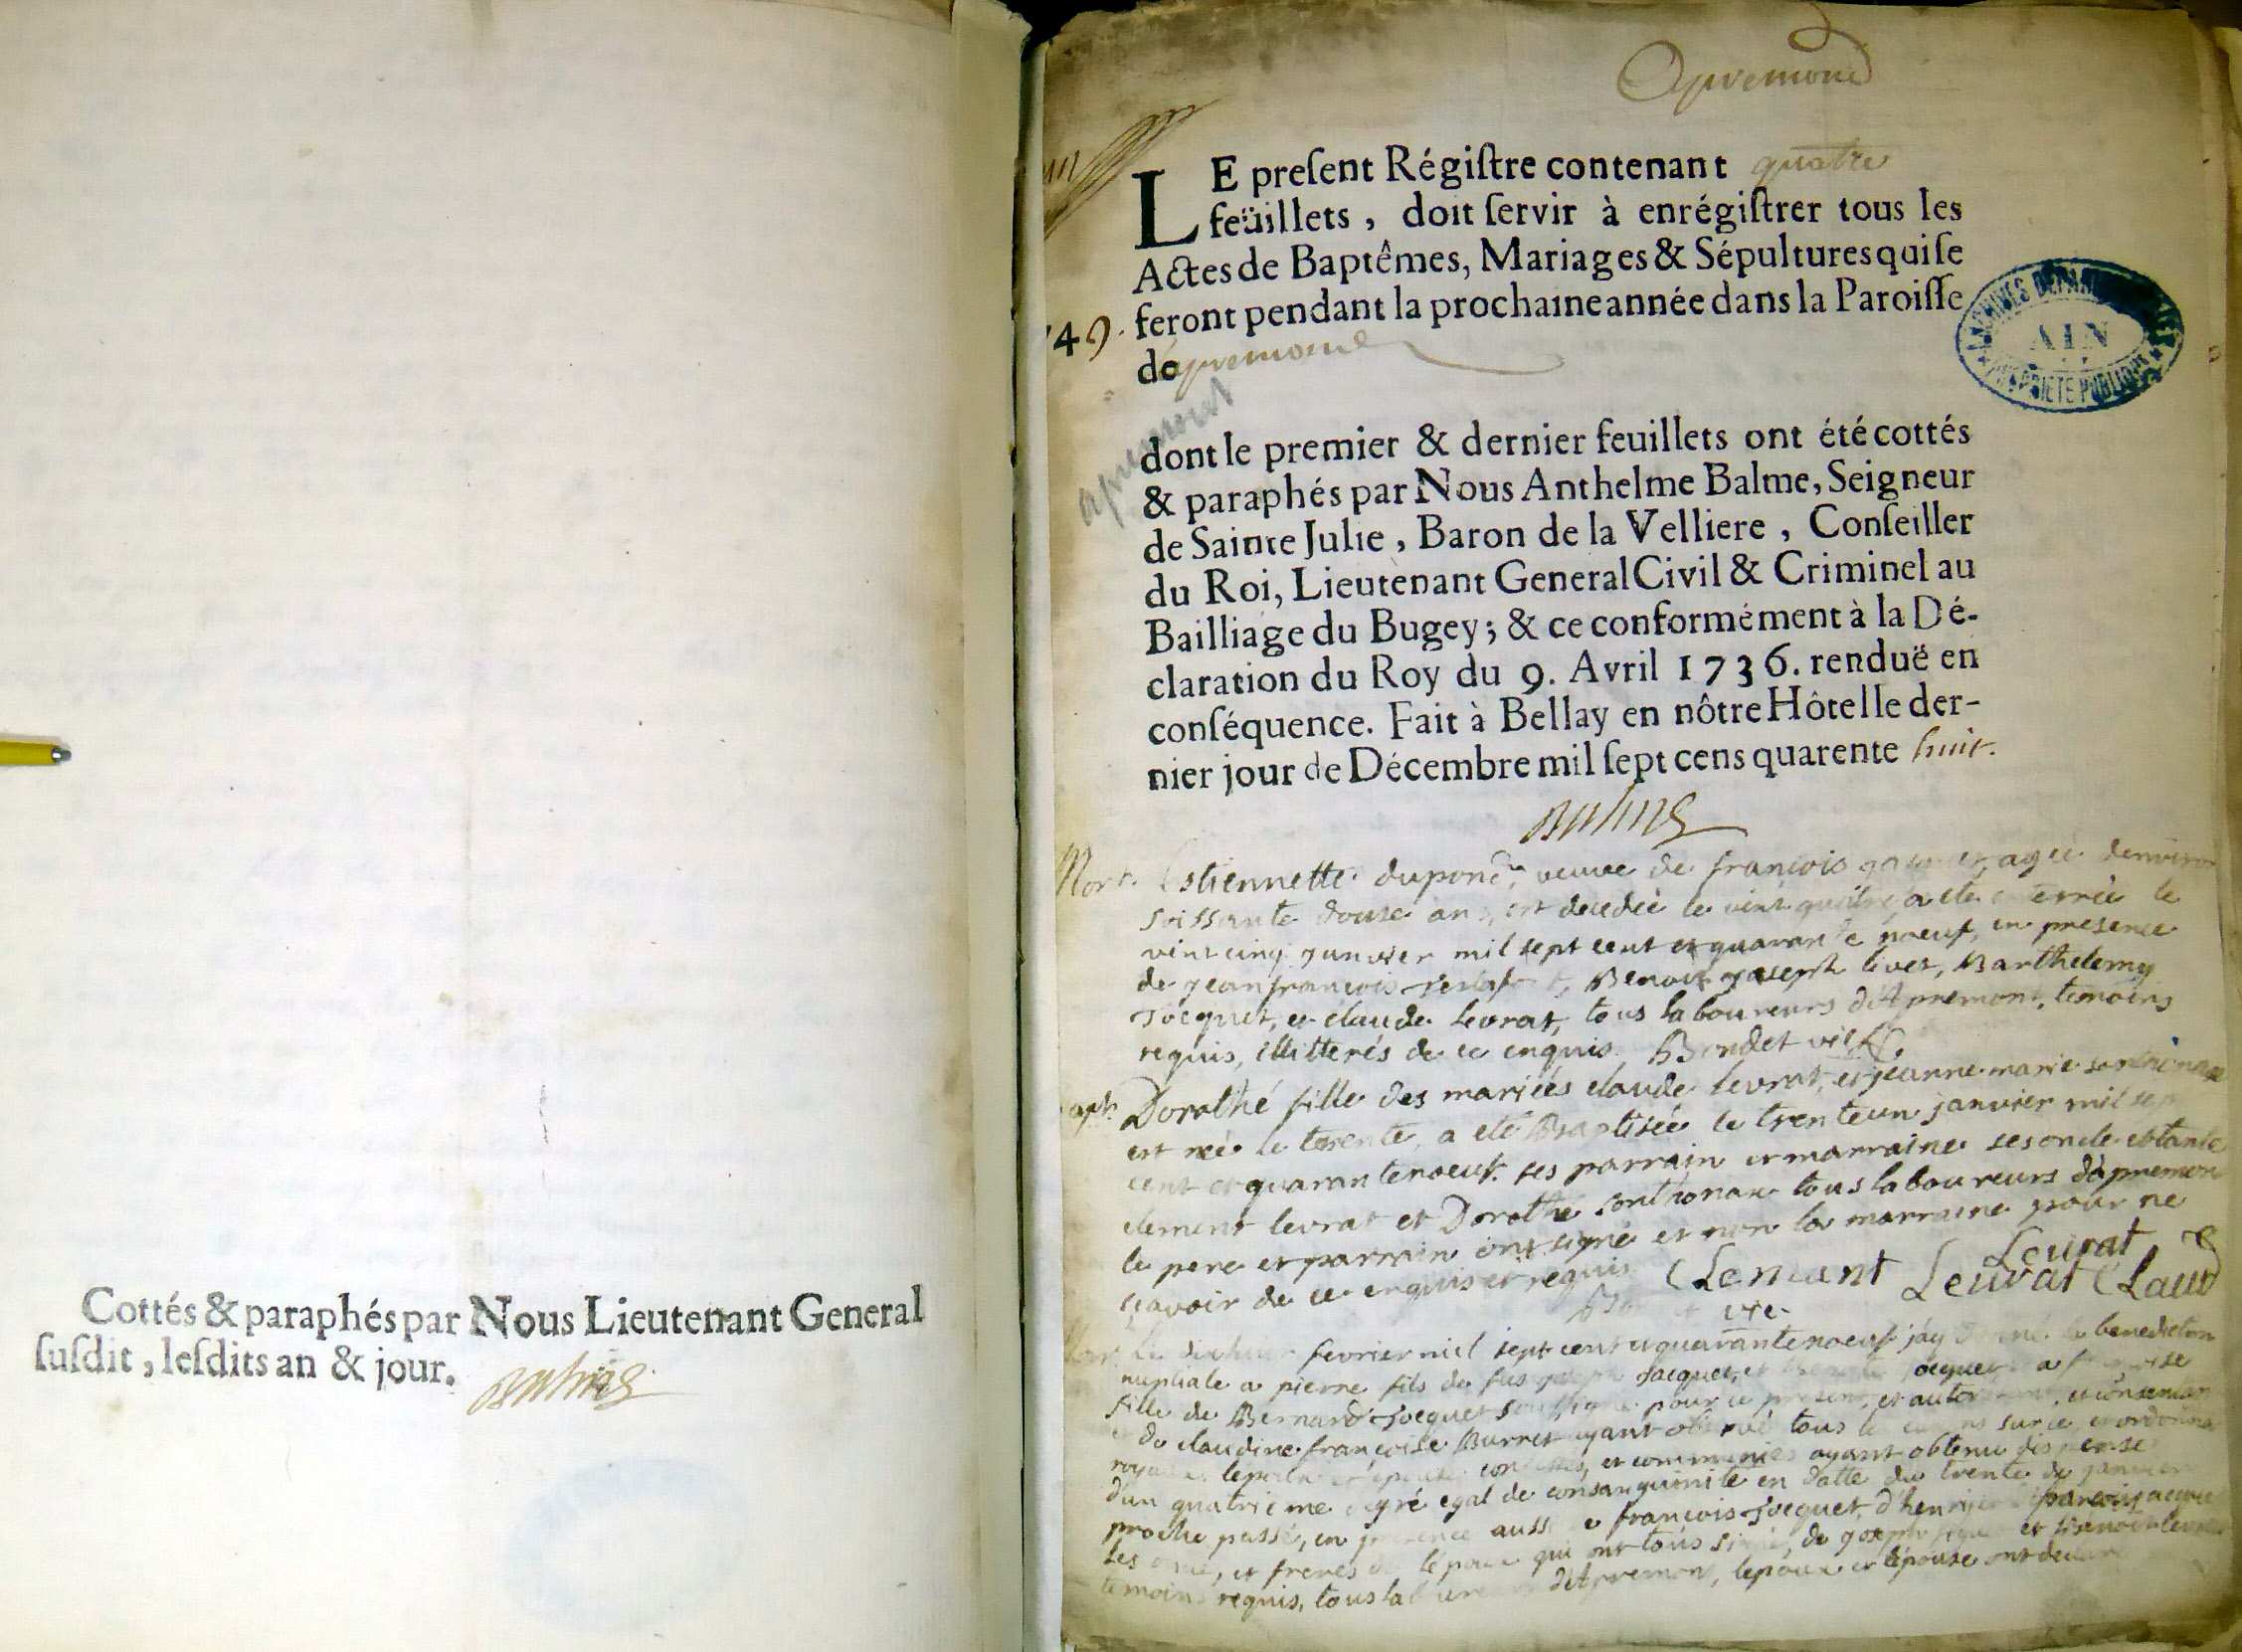 Cottés & paraphés par Nous Lieutenant General
ſuſdit, leſdits an & jour.
Balme
Apremond
LE preſent Régiſtre contenant quatre
feüillets, doit ſervir à enrégiſtrer tous les
Actes de Baptêmes, Mariages & Sépultures qui ſe
feront pendant la prochaine année dans la Paroiſſe
749.
de apremond
apremont
dont le premier & dernier feuillets ont été cottés
& paraphés par Nous Anthelme Balme, Seigneur
de Sainte Julie, Baron de la Velliere, Conſeiller
du Roi, Lieutenant General Civil & Criminel au
Bailliage du Bugey; & ce conformément à la Dé-
claration du Roy du 9. Avril 1736. renduë en
conſéquence. Fait à Bellay en nôtre Hôtel le der-
nier jour de Décembre mil ſept cens quarente huit.
Balme
ARCHIVES DÉPARTEMENTALES
AIN
PROPRIÉTÉ PUBLIQUE
Mort. Estiennette dupond, veuve de françois agée denviron
soissante douse ans, est decedée le vint quatre a eté enterrée le
vint cinq janvier mil sept cent et quarante noeuf, en presence
de jean françois Benoit joseph livet, Barthelemy
Jocquet, et claude levrat, tous laboureurs d'Apremont, temoins
requis, illitterés de ce enquis. Bondet vic.
bapt. Dorothé fille des mariés claude levrat, et jeanne marie sonthonax
est née le trente, a eté Baptisée le trenteun janvier mil sept
cent et quarantenoeuf. ses parrain et marraine ses oncle et tante
clement levrat et Dorothé sonthonax tous laboureurs d'apremont
le pere et parrain ont signé et non la marraine pour ne
sçavoir de ce enquis et requis
Clemant Levrat Levrat Claud
vic.
Mar. fevrier mil sept cent et quarantenoeuf j'ay donné la benediction
nuptiale a pierre fils de fus joseph Jacquet, et Jocquet a françoise
fille de Bernard Jocquet soussigné pour ce present, et autorisant, et consentant
et de claudine françoise Burret ayant observé tous sur ce, et ordonnances
royaux. l'epoux et epouse confessés, et communiés ayant obtenu dispense
d'un quatrieme degré egal de consanguinité en datte du trente de janvier
proche passé, en presence aussi de françois Jocquet, d'henry
les oncle, et freres de l'epoux qui ont tous signé, de joseph et Benoit levrat
temoins requis, tous laboureurs d'Apremont, l'epoux et l'epouse ont declaré